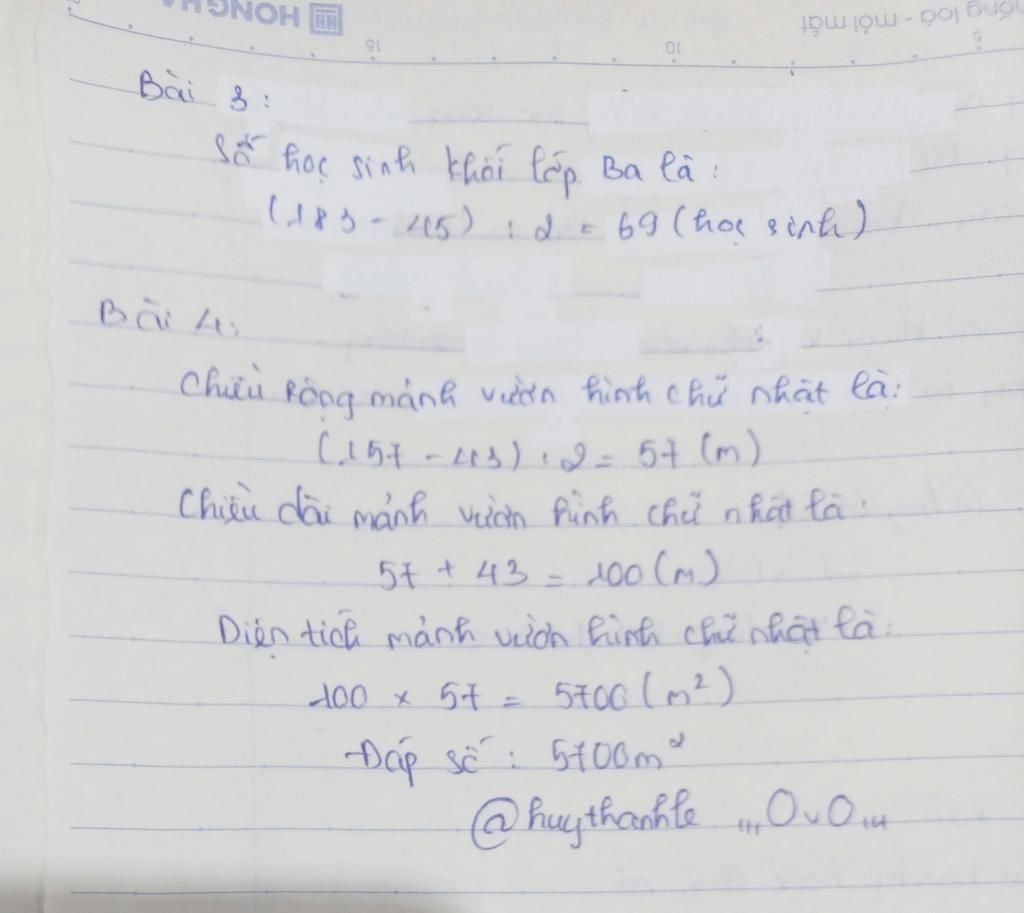 HONG HA
hống loá - mỏi mắt
15
10
5
Bài 3:
Số học sinh khối lớp Ba là:
(183 - 45) : 2 = 69 (học sinh)
Bài 4:
Chiều rộng mảnh vườn hình chữ nhật là:
(157 - 43) : 2 = 57 (m)
Chiều dài mảnh vườn hình chữ nhật là:
57 + 43 = 100 (m)
Diện tích mảnh vườn hình chữ nhật là:
100 x 57 = 5700 (m²)
Đáp số: 5700m²
@huythanhle ,,,OvO,,,